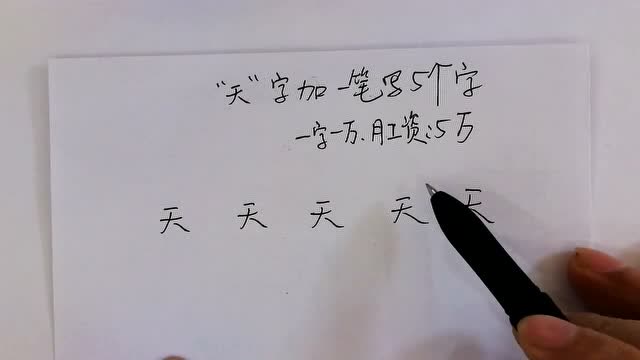 “天”字加一笔写5个字
一字一万、月工资:5万
天 天 天 天 天